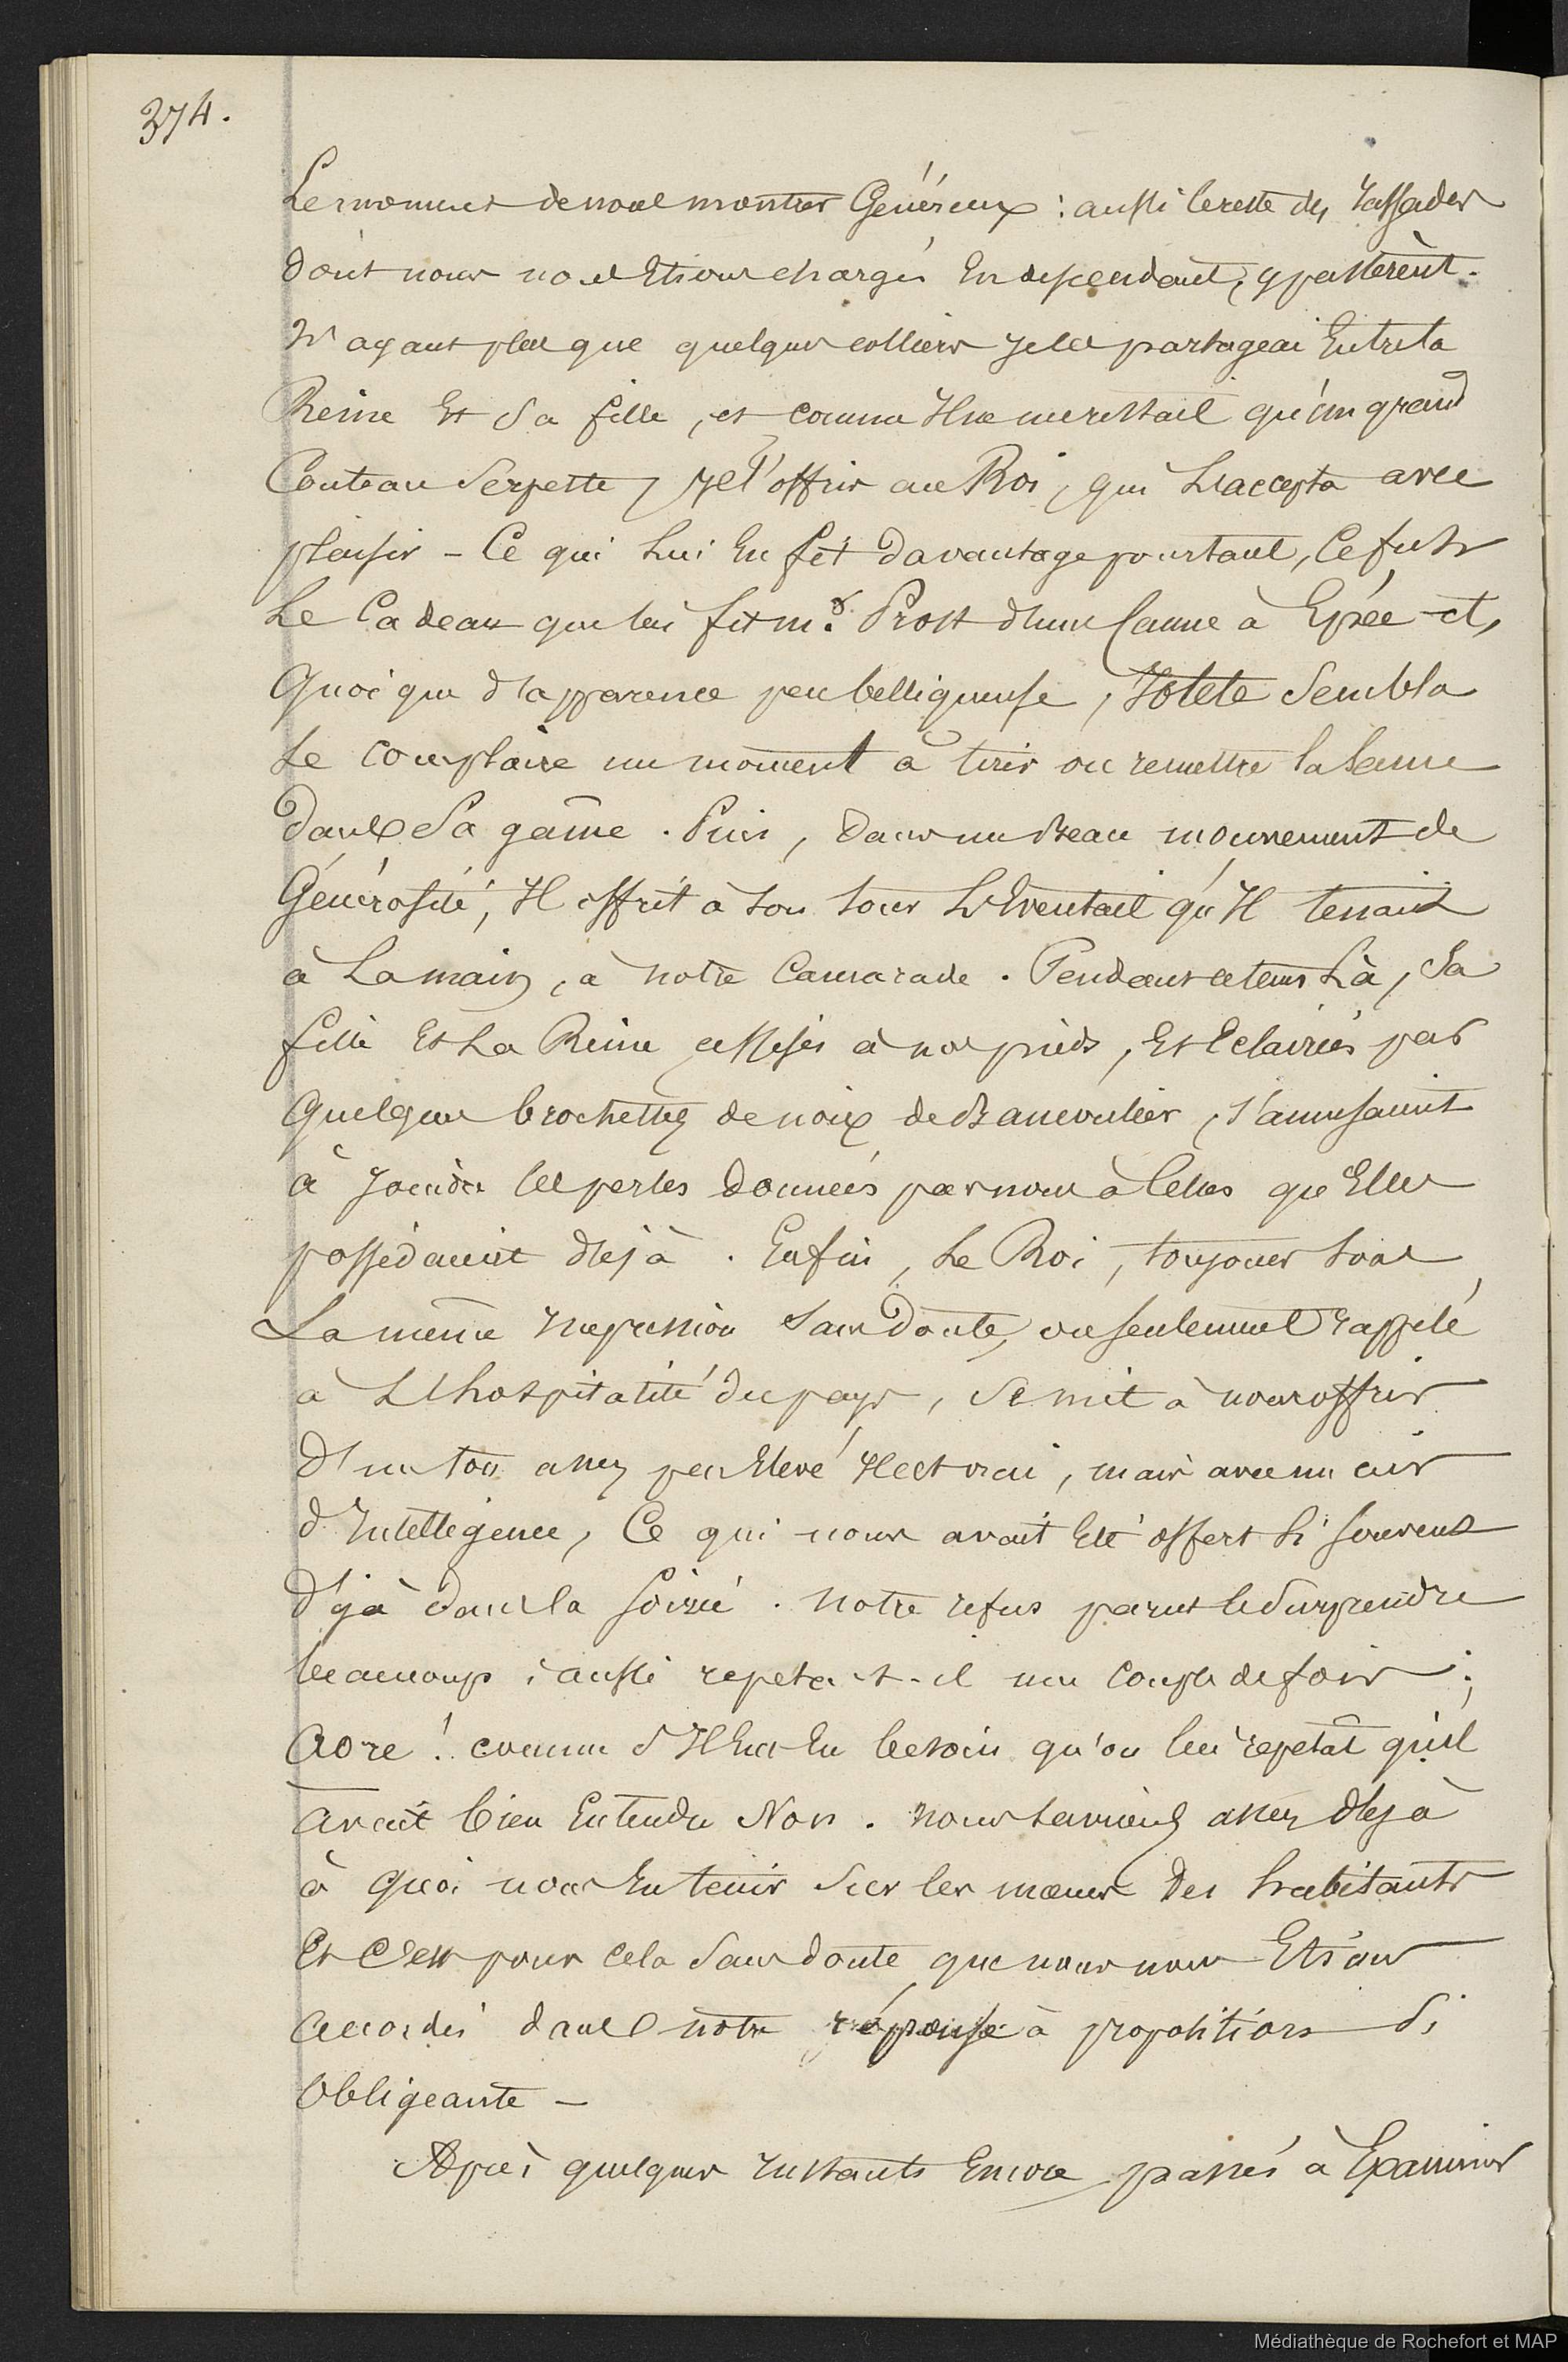 374.
Le moment de nous montrer Généreux : aussi le reste des Rassades
dont nous nous Etions chargés En descendant, y passèrent.
N'ayant plus que quelques colliers je les partageai Entre la
Reine Et Sa fille, et comme Il ne me restait qu'un grand
Couteau Serpette, je l'offris au Roi, qui L'accepta avec
plaisir - Ce qui Lui En fit davantage pourtant, Ce fut
Le Cadeau que lui fit mr. Prost d'une Canne à Epée et,
Quoique d'apparence peu belliqueuse, Iotete Sembla
Se complaire un moment à tirer ou remettre la Lame
dans Sa gaîne. Puis, dans un Beau mouvement de
Générosité, Il offrit à Son tour L'Eventail qu'Il tenait
à La main, à notre Camarade. Pendant ce tems Là, Sa
fille Et La Reine assises à nos pieds, Et Eclairées par
Quelques brochettes de noix de Bancoulier, s'amusaient
à Joindre les perles données par nous à Celles qu'Elles
possédaient déjà. Enfin, Le Roi, toujours Sous
La même Impression Sans Doute, ou seulement rappelé
à L'hospitalité du pays, Se mit à nous offrir
D'un ton assez peu Elevé Il est vrai, mais avec un air
d'Intelligence, Ce qui nous avait Eté offert Si souvent
Déjà dans la soirée. notre refus parut le Surprendre
beaucoup ; aussi repeta-t-il une couple de fois :
Aore ! comme S'Il Eut Eu besoin qu'on lui repetât qu'il
avait bien Entendu Non. nous Savions assez déjà
à quoi nous En tenir Sur les mœurs des habitants
Et C'est pour Cela Sans doute que nous nous Etions
accordés dans notre réponse à propositions Si
Obligeante -
Après quelques Instants Encore passés à Examiner
Médiathèque de Rochefort et MAP